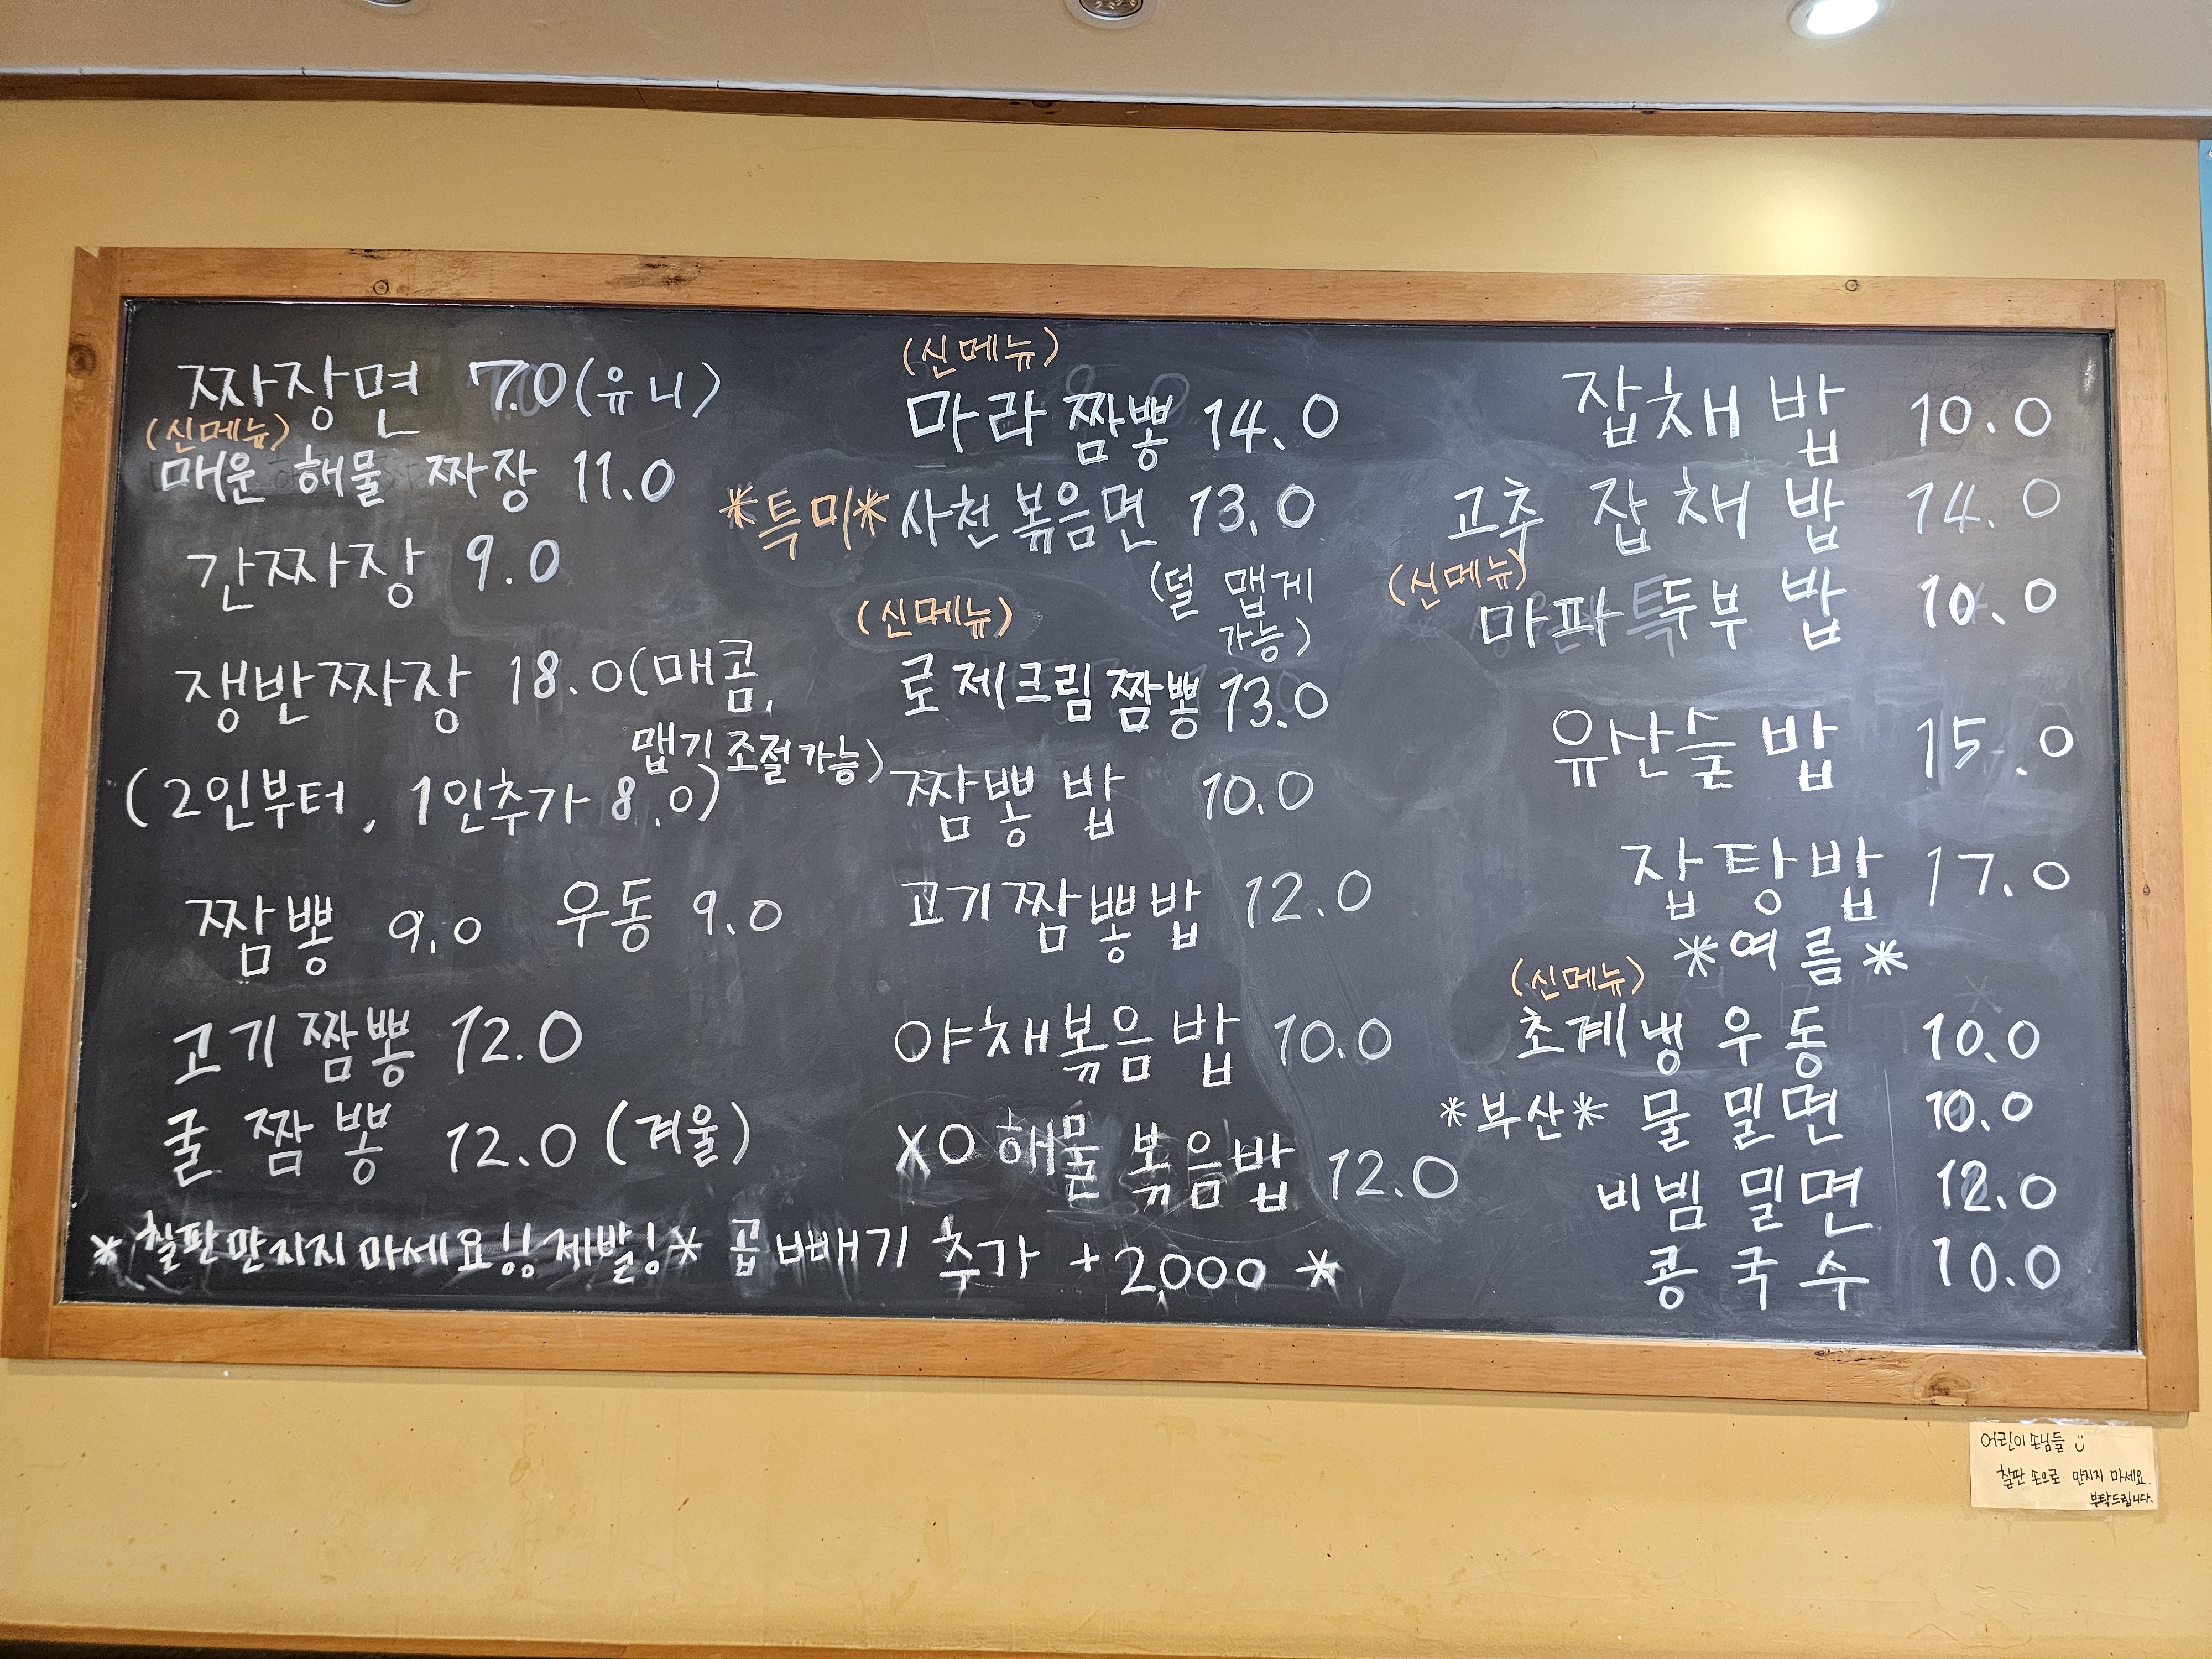 짜장면 7.0(유니)
(신메뉴)
매운 해물 짜장 11.0
간짜장 9.0
쟁반짜장 18.0(매콤,
맵기 조절가능)
(2인부터, 1인추가 8.0)
짬뽕 9.0 우동 9.0
고기짬뽕 12.0
굴짬뽕 12.0 (겨울)
(신메뉴)
마라 짬뽕 14.0
*특미* 사천 볶음면 13.0
(덜 맵게
가능)
(신메뉴)
로제크림 짬뽕 13.0
짬뽕 밥 10.0
고기짬뽕밥 12.0
야채볶음밥 10.0
XO 해물 볶음밥 12.0
잡채 밥 10.0
고추 잡채 밥 14.0
(신메뉴)
마파두부 밥 10.0
유산슬 밥 15.0
잡탕밥 17.0
*여름*
(신메뉴)
초계냉우동 10.0
*부산* 물 밀면 10.0
비빔 밀면 12.0
콩국수 10.0
* 칠판만지지마세요!! 제발!* 곱빼기 추가 +2,000 *
어린이 손님들
칠판 손으로 만지지 마세요.
부탁드립니다.